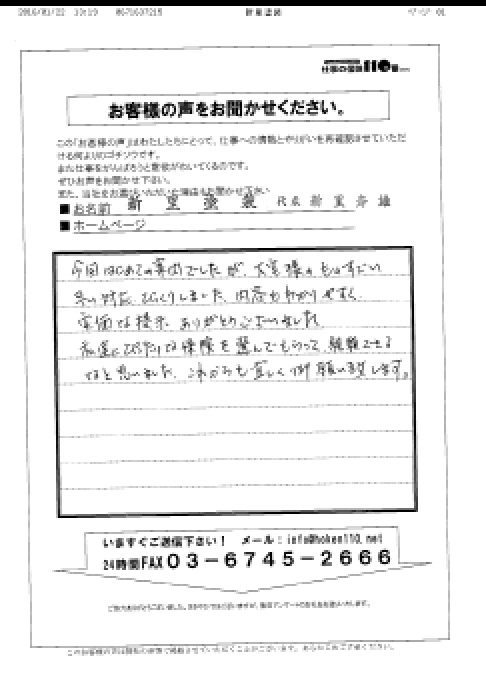 2016/01/22 13:19 0671637215 新星塗装 ページ 01
仕事の保険110番
お客様の声をお聞かせください。
この「お客様の声」はわたしたちにとって、仕事への情熱とやりがいを再確認させていただ
ける何よりのゴチソウです。
また仕事をがんばろうと意欲がわいてくるのです。
ぜひお声をお聞かせ下さい。
また、当社をお選びいただいた理由もお聞かせ下さい
■お名前 新 里 塗 装 代表 新 里 雄
■ホームページ
今回はじめての専門でしたが、大変 ものすごい
早い対応 びっくりしました。内容もわかりやすく
安価な提示 ありがとうございました
私達にぴったりな保険を選んでもらって、頼れる
なと思いました、これからも宜しく御願い致します。
いますぐご送信下さい！ メール：info@hoken110.net
24時間FAX 03-6745-2666
ご協力ありがとうございました。
このお客様の声は